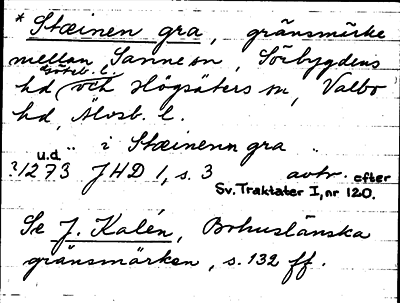 * Stæinen gra, gränsmärke
mellan Sanne sn, Sörbygdens
Göteb. l.
hd och Högsäters sn, Valbo
hd, Älvsb. l.
"i Stæinenn gra"
u.d.
?1273 JHD 1, s. 3 avtr. efter
Sv. Traktater I, nr 120.
Se J. Kalén, Bohuslänska
gränsmärken, s. 132 ff.